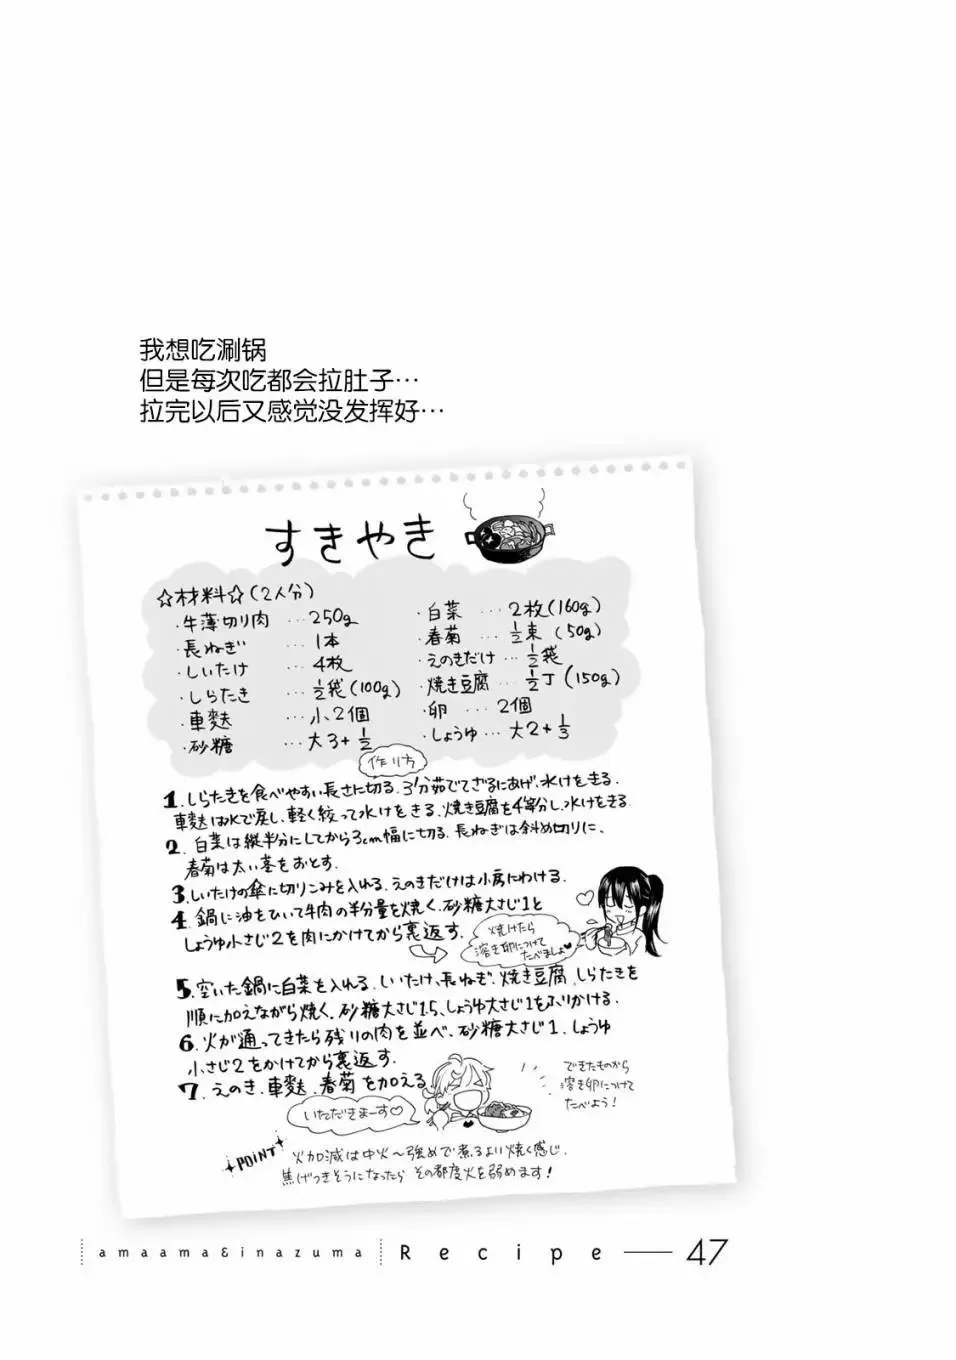 我想吃涮锅
但是每次吃都会拉肚子…
拉完以后又感觉没发挥好…
すきやき
☆材料☆(2人分)
・牛薄切り肉 …250g
・長ねぎ …1本
・しいたけ …4枚
・しらたき …½袋(100g)
・車麩 …小2個
・砂糖 …大3+½
・白菜 …2枚(160g)
・春菊 …½束(50g)
・えのきだけ …½袋
・焼き豆腐 …½丁(150g)
・卵 …2個
・しょうゆ …大2+⅓
作り方
1.しらたきを食べやすい長さに切る.3分茹でてざるにあげ,水けをきる.
車麩は水で戻し,軽く絞って水けをきる.焼き豆腐を4等分し,水けをきる.
2.白菜は縦半分にしてから3cm幅に切る.長ねぎは斜め切りに、
春菊は太い茎をおとす.
3.しいたけの傘に切りこみを入れる.えのきだけは小房にわける.
4.鍋に油をひいて牛肉の半分量を焼く.砂糖大さじ1と
しょうゆ小さじ2を肉にかけてから裏返す.
焼けたら
溶き卵につけて
たべましょ♥
5.空いた鍋に白菜を入れる.しいたけ、長ねぎ.焼き豆腐.しらたきを
順に加えながら焼く.砂糖大さじ1.5,しょうゆ大さじ1をふりかける.
6.火が通ってきたら残りの肉を並べ、砂糖大さじ1.しょうゆ
小さじ2をかけてから裏返す.
7.えのき.車麩.春菊を加える
いただきまーす♡
できたものから
溶き卵につけて
たべよう!
POINT
火加減は中火～強めで煮るより焼く感じ.
焦げつきそうになったら その都度火を弱めます!
amaama&inazuma Recipe 47